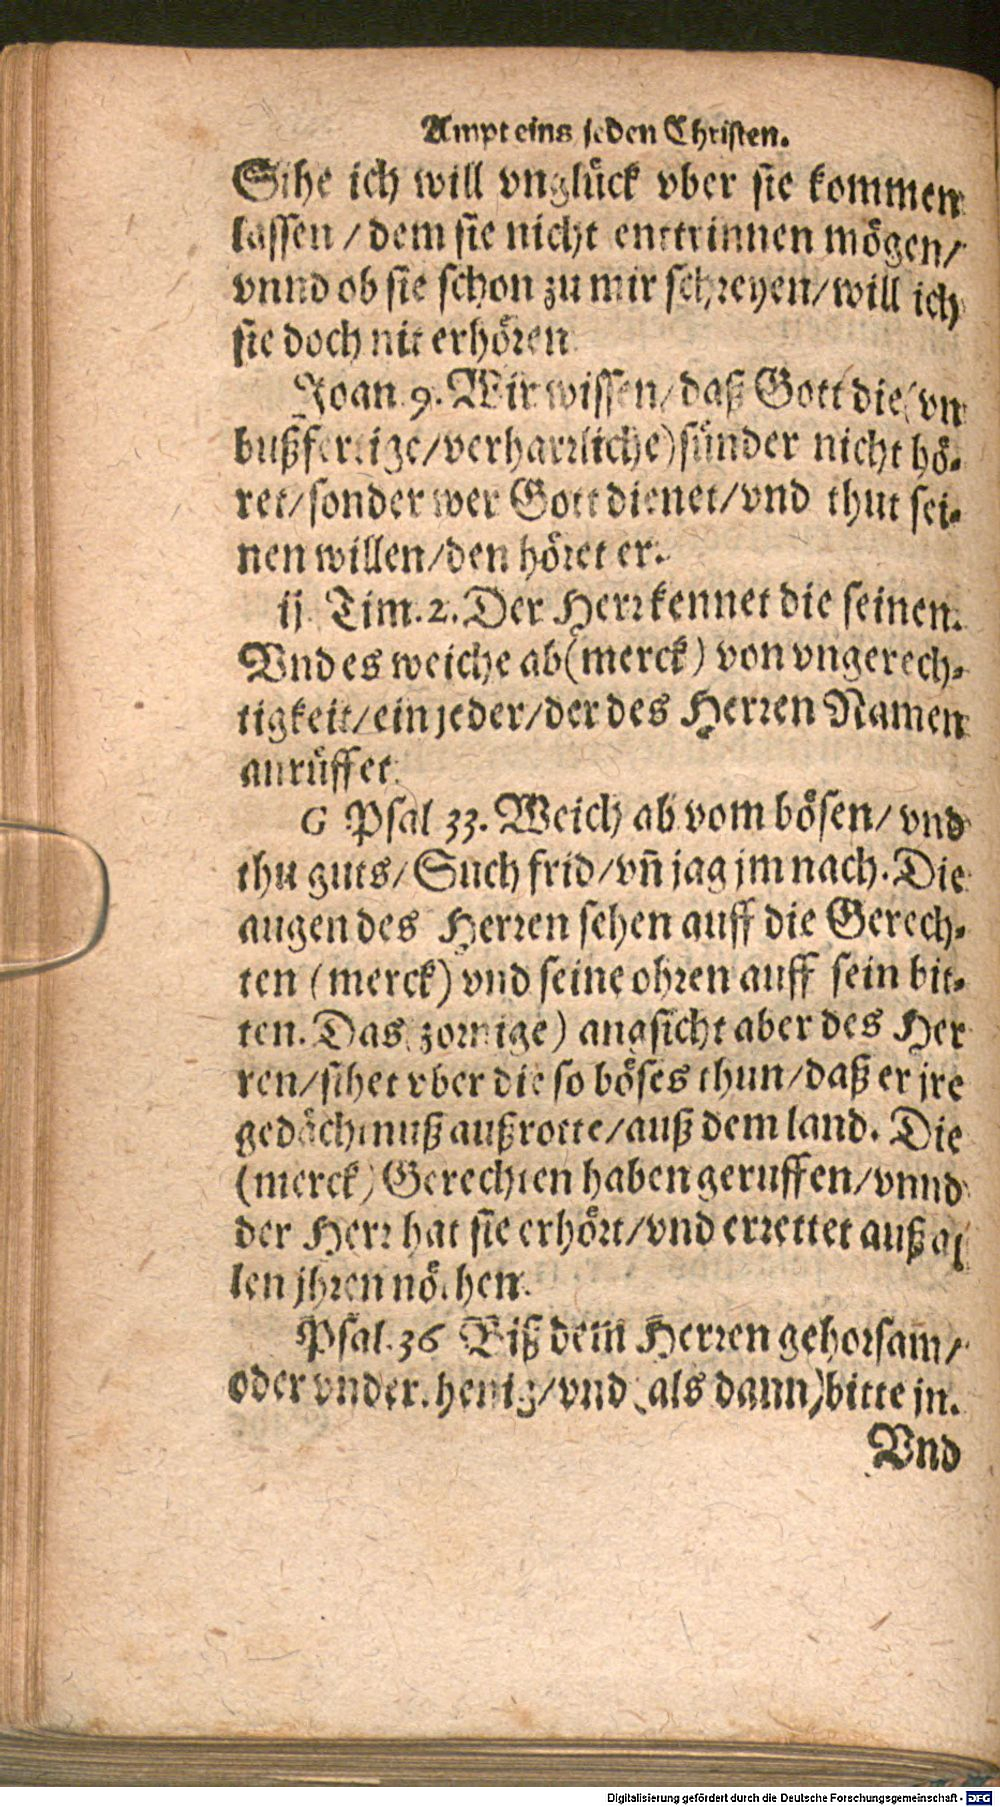 Ampt eins jeden Christen.
Sihe ich will vnglück vber sie kommen
lassen / dem sie nicht enttrinnen mögen /
vnnd ob sie schon zu mir schreyen / will ich
sie doch nit erhören
Joan 9. Wir wissen / daß Gott die (vn
bußfertige / verharrliche) sünder nicht hö-
ret / sonder wer Gott dienet / vnd thut sei-
nen willen / den höret er.
ij Tim. 2. Der Herr kennet die seinen.
Vnd es weiche ab (merck) von vngerech-
tigkeit / ein jeder / der des Herren Namen
anrüffet.
G Psal 33. Weich ab vom bösen / vnd
thu guts / Such frid / vñ jag jm nach. Die
augen des Herren sehen auff die Gerech-
ten (merck) vnd seine ohren auff sein bit-
ten. Das (zornige) angsicht aber des Her
ren / sihet vber die so böses thun / daß er jre
gedächtnuß außrotte / auß dem land. Die
(merck) Gerechten haben geruffen / vnnd
der Herr hat sie erhört / vnd errettet auß al
len jhren nöthen.
Psal. 36 Biß dem Herren gehorsam /
oder vnderthenig / vnd (als dann) bitte jn.
Vnd
Digitalisierung gefördert durch die Deutsche Forschungsgemeinschaft - DFG